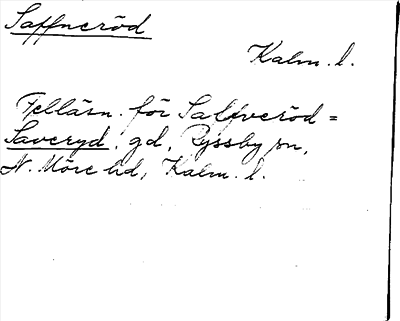 Saffneröd
Kalm. l.
Felläsn. för Saffveröd =
Saveryd, gd, Ryssby sn,
N. Möre hd, Kalm. l.